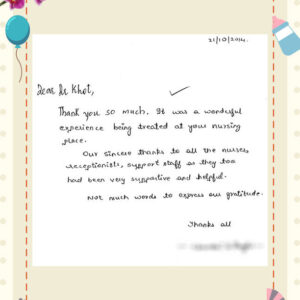 21/10/2014.
Dear Dr Khot,
Thank you so much. It was a wonderful
experience being treated at your nursing
place.
Our sincere thanks to all the nurses,
receptionists, support staff as they too
had been very supportive and helpful.
Not much words to express our gratitude.
Thanks all